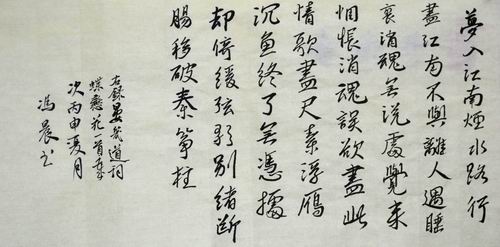 夢入江南煙水路行
盡江南不與離人遇睡
裏消魂無說處覺來
惆悵消魂誤欲盡此
情歌盡尺素浮鴈
沉魚終了無憑據
却倚緩弦歌別緒斷
腸移破秦箏柱
右錄晏幾道詞
蝶戀花一首歲
次丙申夏月
馮晨书